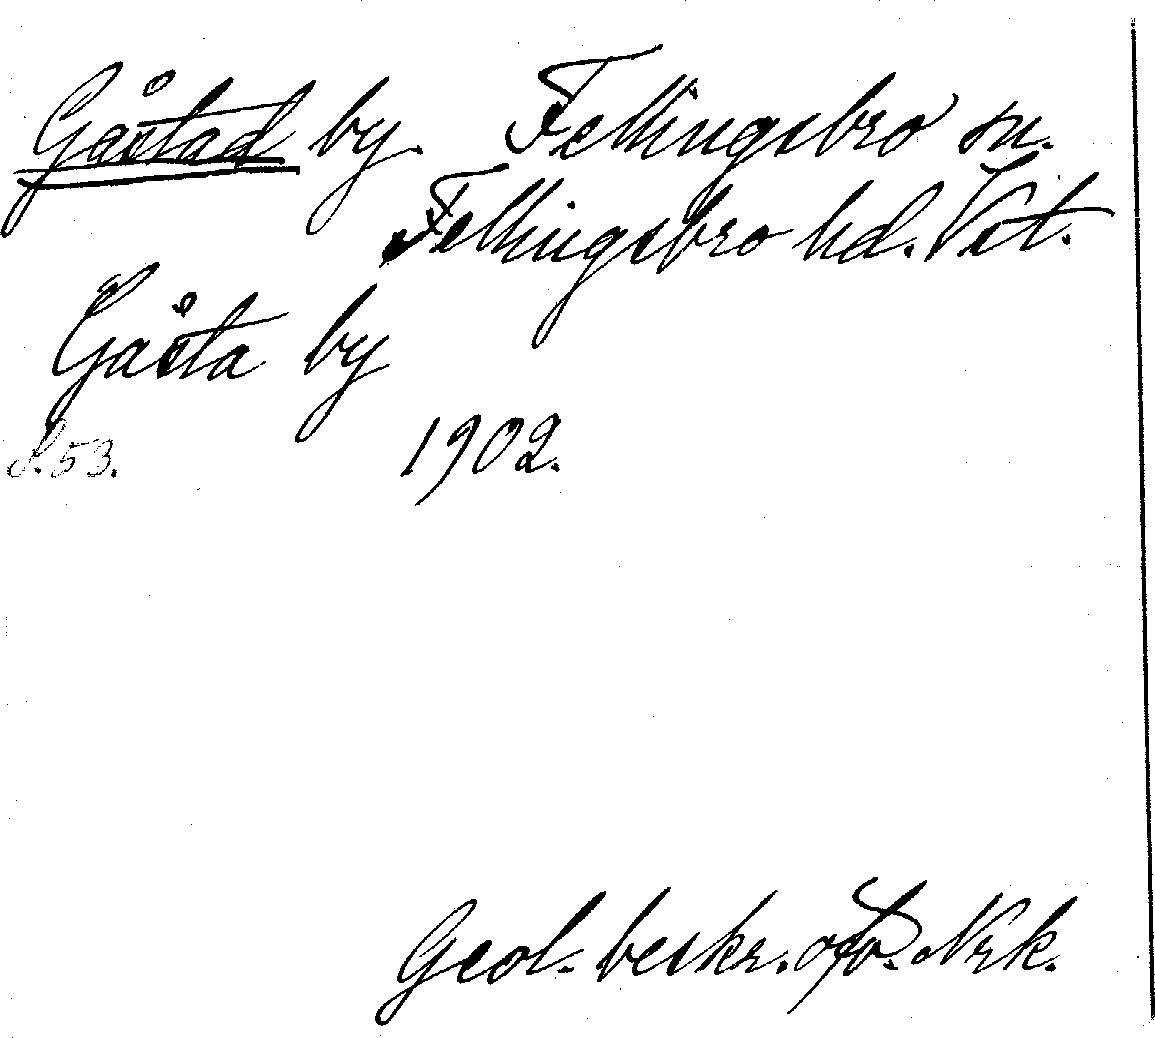 Gåstad by. Fellingsbro sn.
Fellingsbro hd. Vst.
Gåsta by
S. 53. 1902.
Geol. beskr. öfv. Nrk.